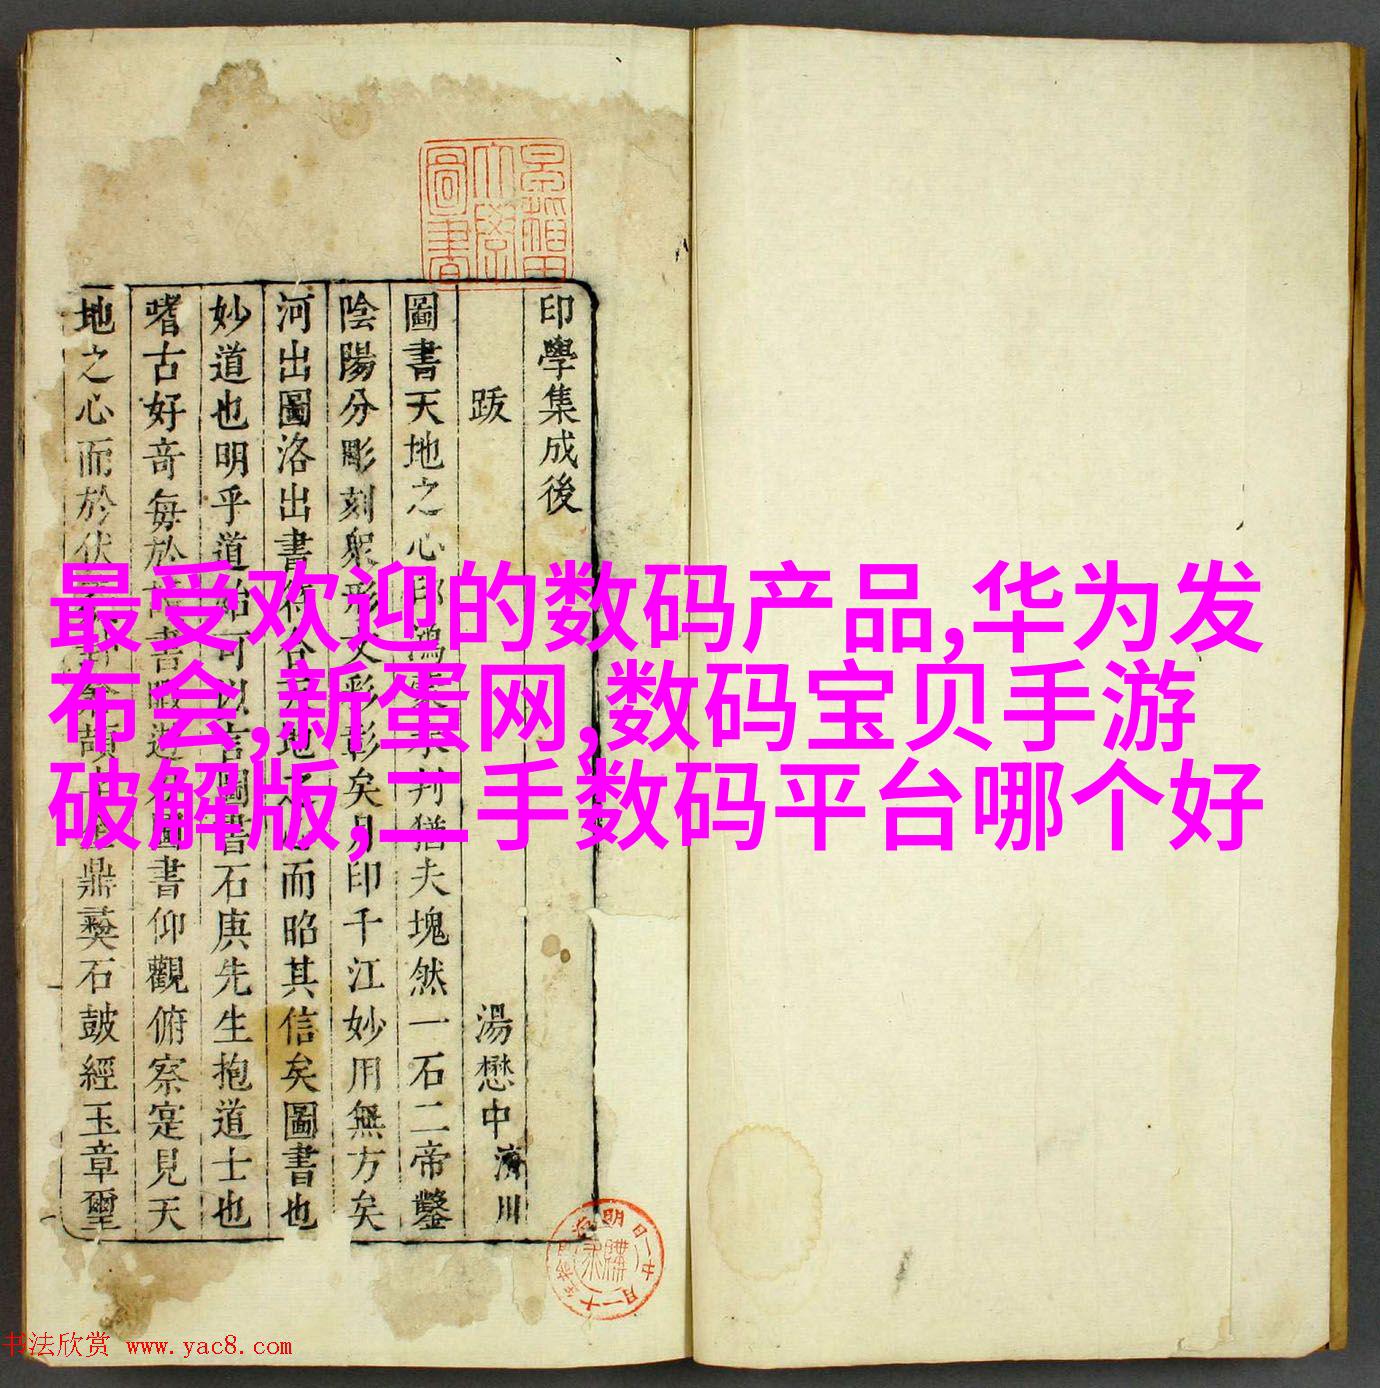 最受欢迎的数码产品,华为发
布会,新蛋网,数码宝贝手游
破解版,二手数码平台哪个好
印學集成後
跋
湯懋中
濟川
圖書天地之心
猶夫塊然一石二帝鑿
陰陽分彫刻
矣月印千江妙用無方矣
河出圖洛出書
而昭其信矣圖書也
妙道也明乎道
圖書石庚先生抱道士也
嗜古好竒每於
圖書仰觀俯察寔見天
地之心而於伏
鼎彝石鼓經玉章璽
書法欣赏 www.yac8.com